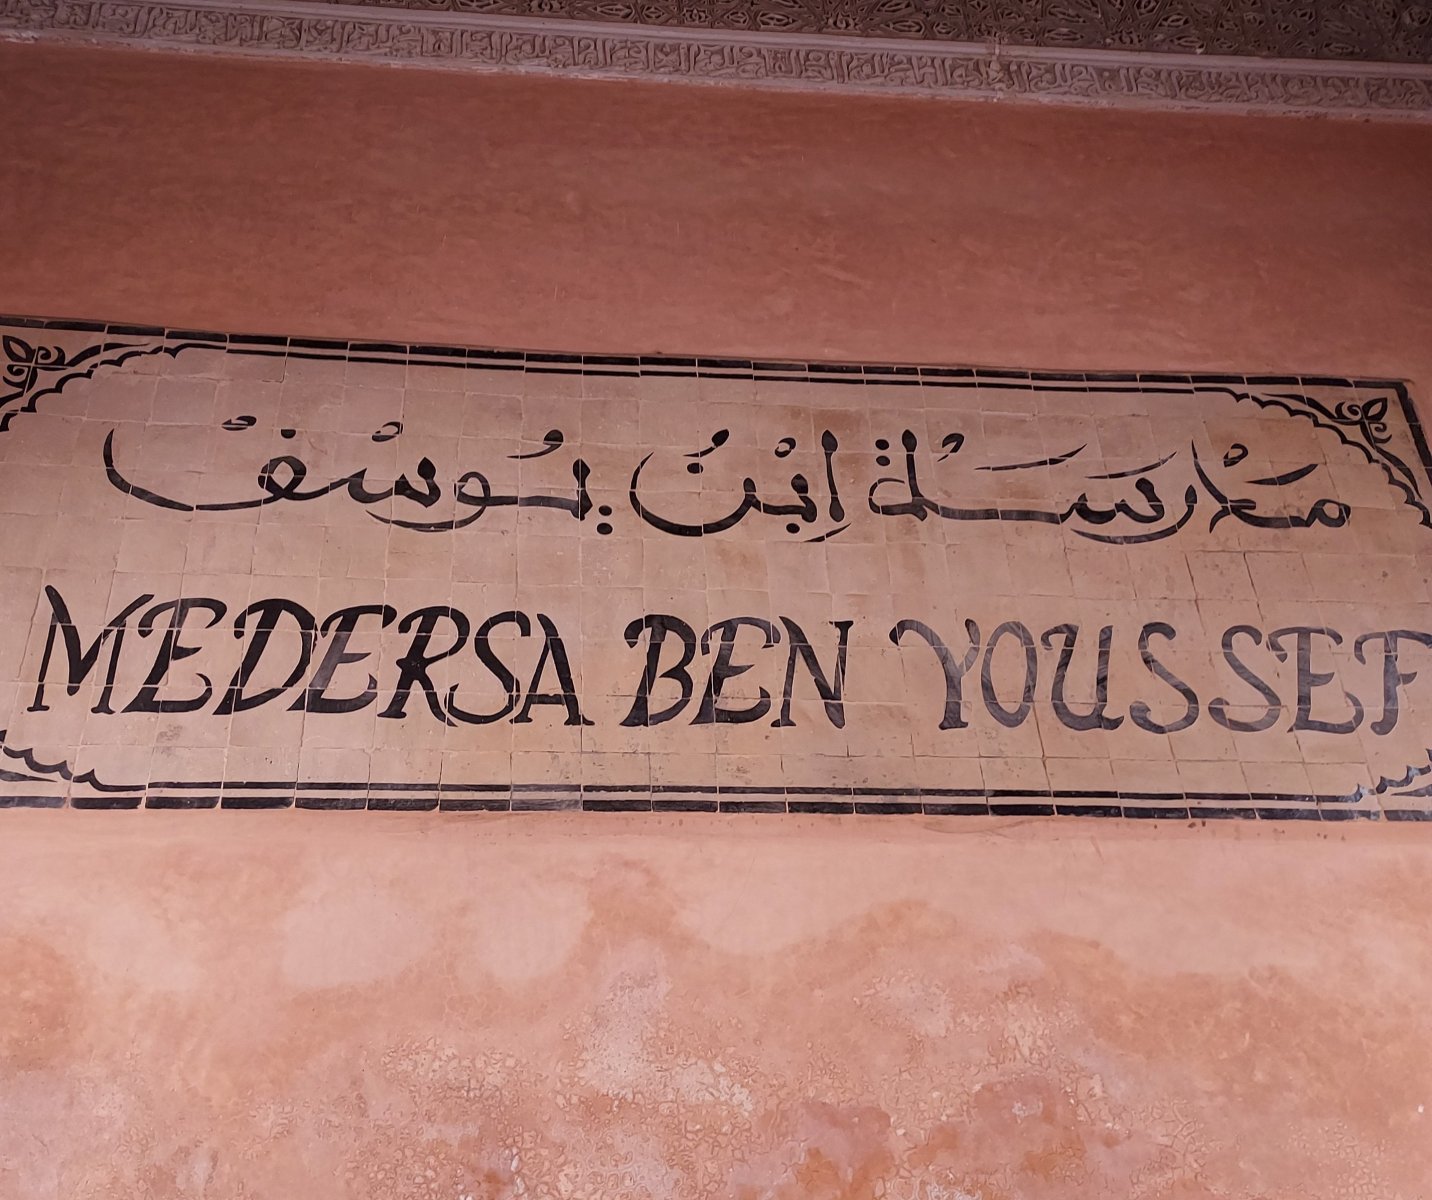 مَدْرَسَة ابْنُ يُوسُفْ
MEDERSA BEN YOUSSEF